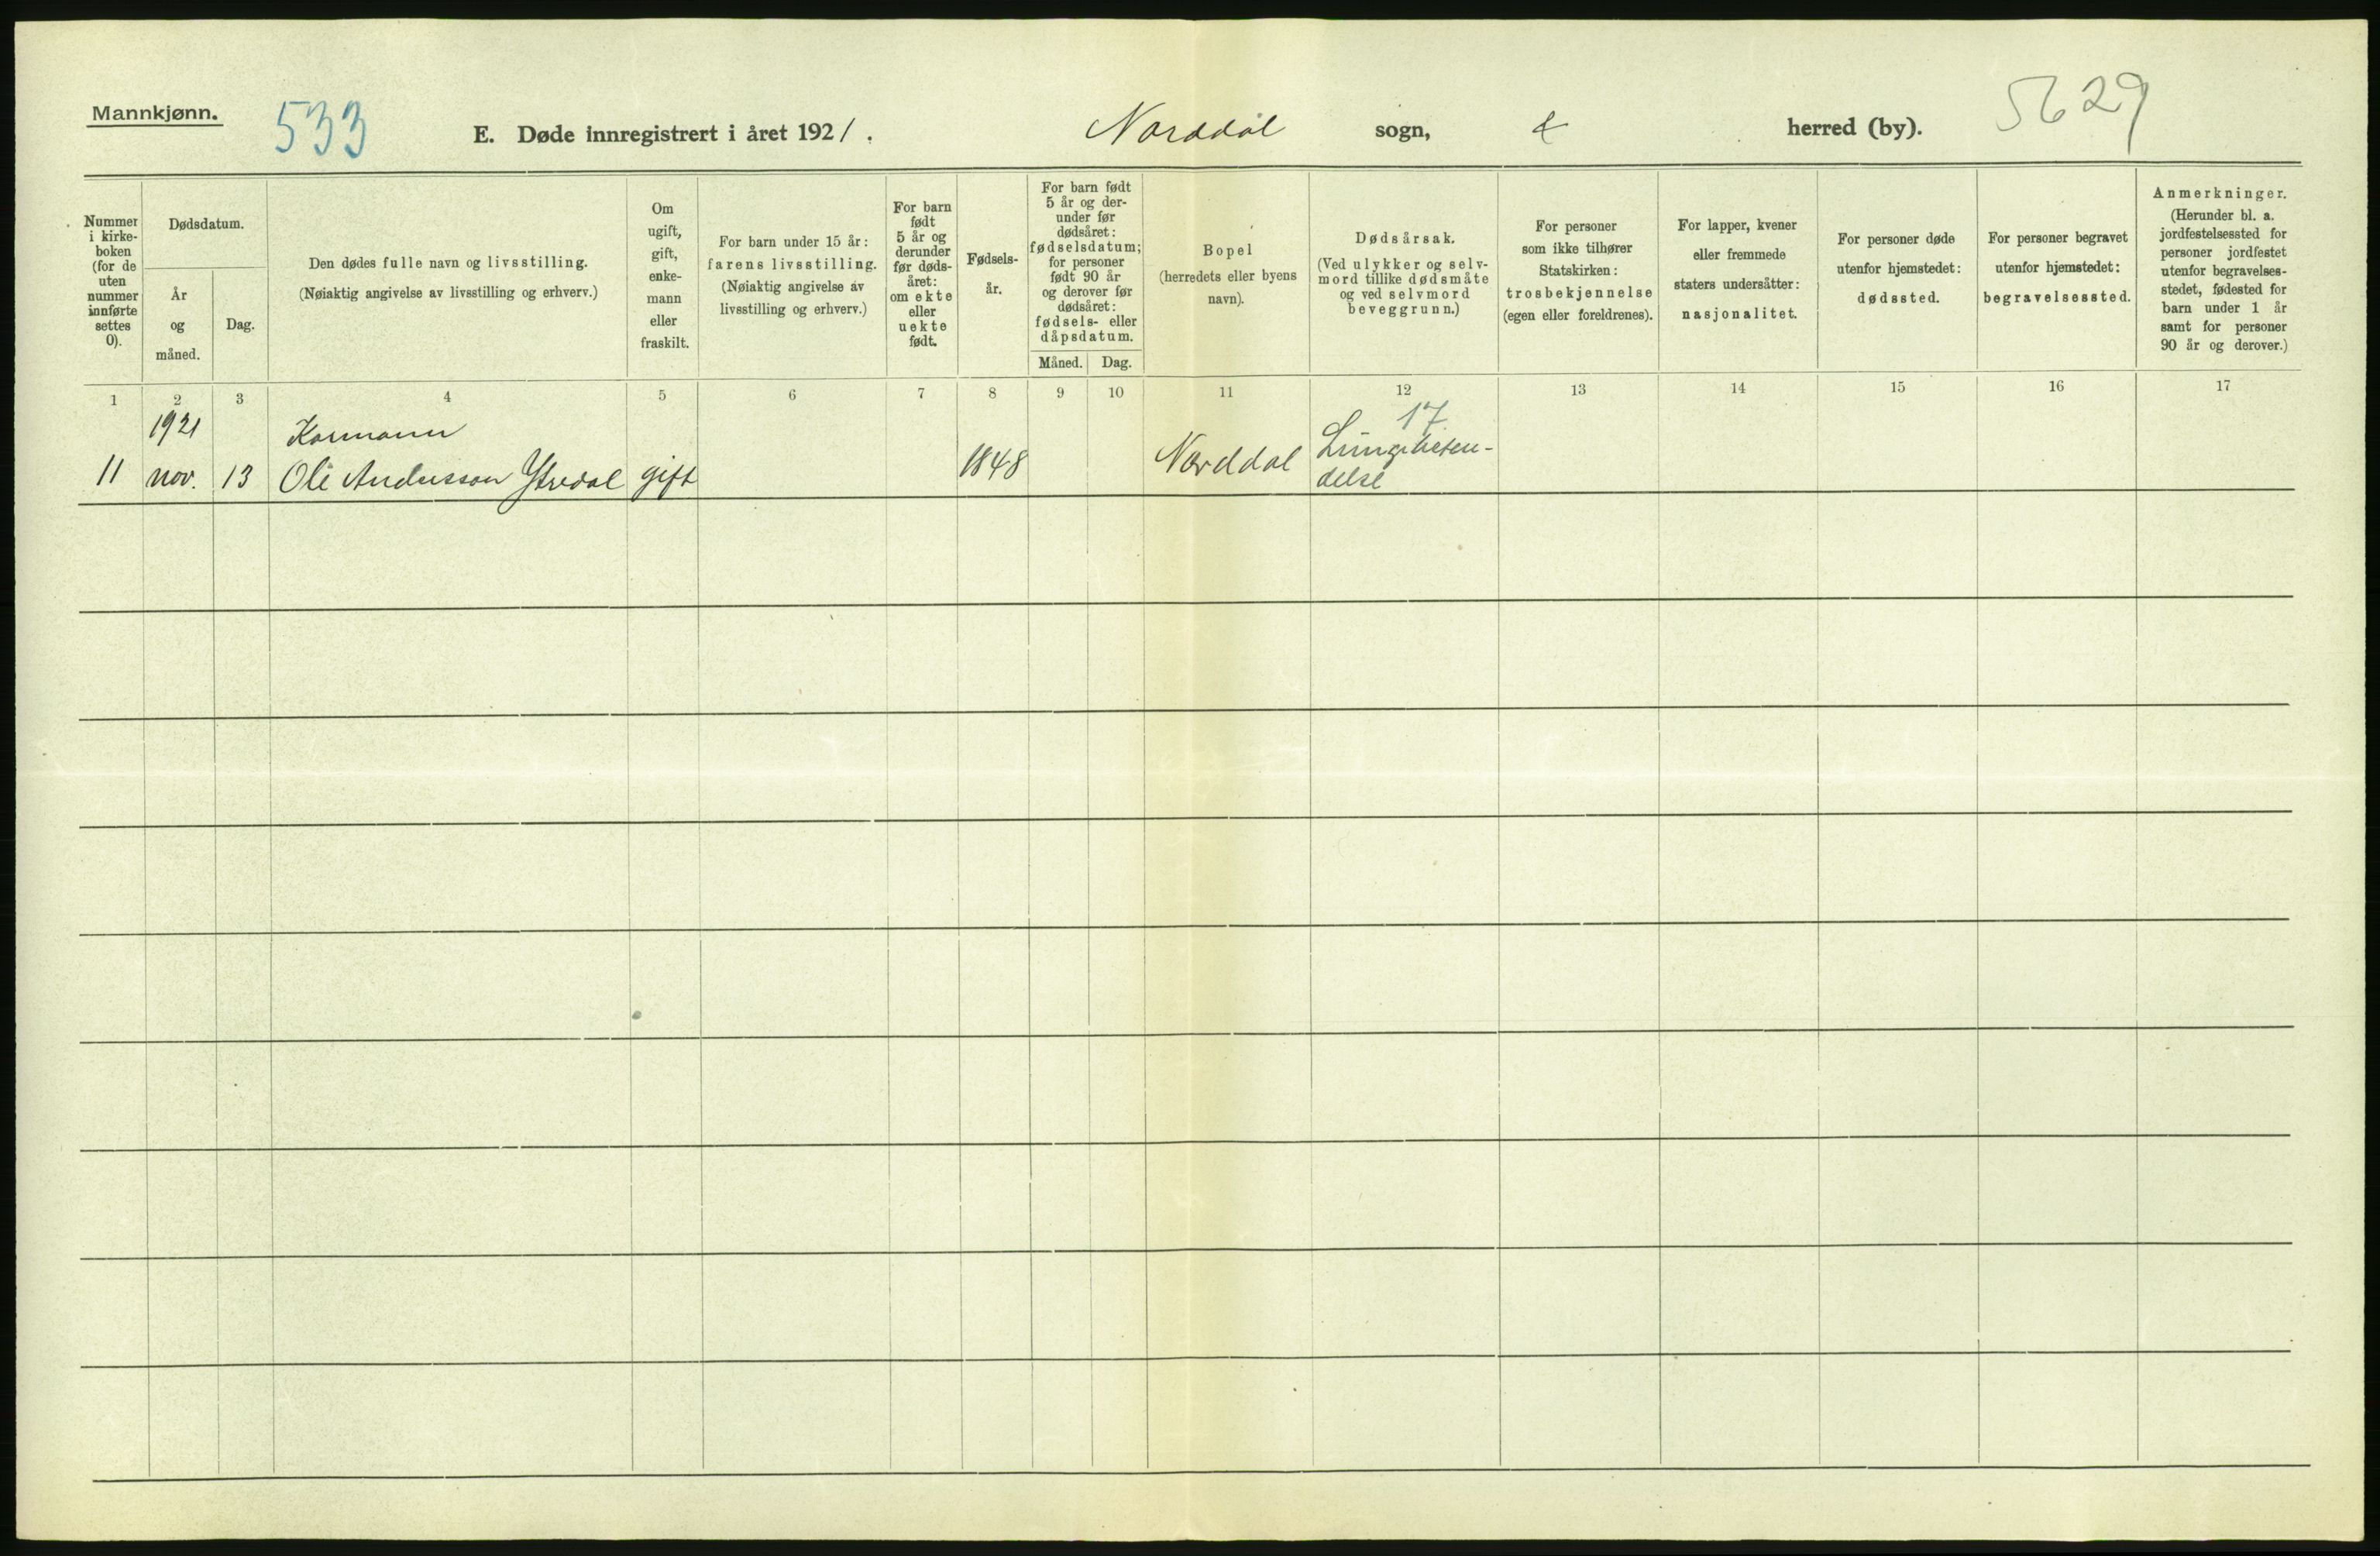 Mannkjønn.
533
E. Døde innregistrert i året 1921.
Norddal sogn, & herred (by).
5629
Nummer i kirke- boken (for de uten nummer innførte settes 0).
Dødsdatum.
År og måned.
Dag.
Den dødes fulle navn og livsstilling.
(Nøiaktig angivelse av livsstilling og erhverv.)
Om ugift, gift, enke- mann eller fraskilt.
For barn under 15 år:
farens livsstilling.
(Nøiaktig angivelse av
livsstilling og erhverv.)
For barn født 5 år og derunder før døds- året: om ekte eller uekte født.
Fødsels- år.
For barn født
5 år og der-
under før
dødsåret:
fødselsdatum;
for personer
født 90 år
og derover før
dødsåret:
fødsels- eller
dåpsdatum.
Måned. Dag.
Bopel
(herredets eller byens
navn).
Dødsårsak.
(Ved ulykker og selv-
mord tillike dødsmåte
og ved selvmord
beveggrunn.)
For personer
som ikke tilhører
Statskirken:
trosbekjennelse
(egen eller foreldrenes).
For lapper, kvener
eller fremmede
staters undersåtter:
nasjonalitet.
For personer døde
utenfor hjemstedet:
dødssted.
For personer begravet
utenfor hjemstedet:
begravelsessted.
Anmerkninger.
(Herunder bl. a.
jordfestelsessted for
personer jordfestet
utenfor begravelses-
stedet, fødested for
barn under 1 år
samt for personer
90 år og derover.)
1 2 3 4 5 6 7 8 9 10 11 12 13 14 15 16 17
1921 Kaarmann 17
11 nov. 13 Ole Andersson Ytredal gift 1848 Norddal Lungebeten-
delse